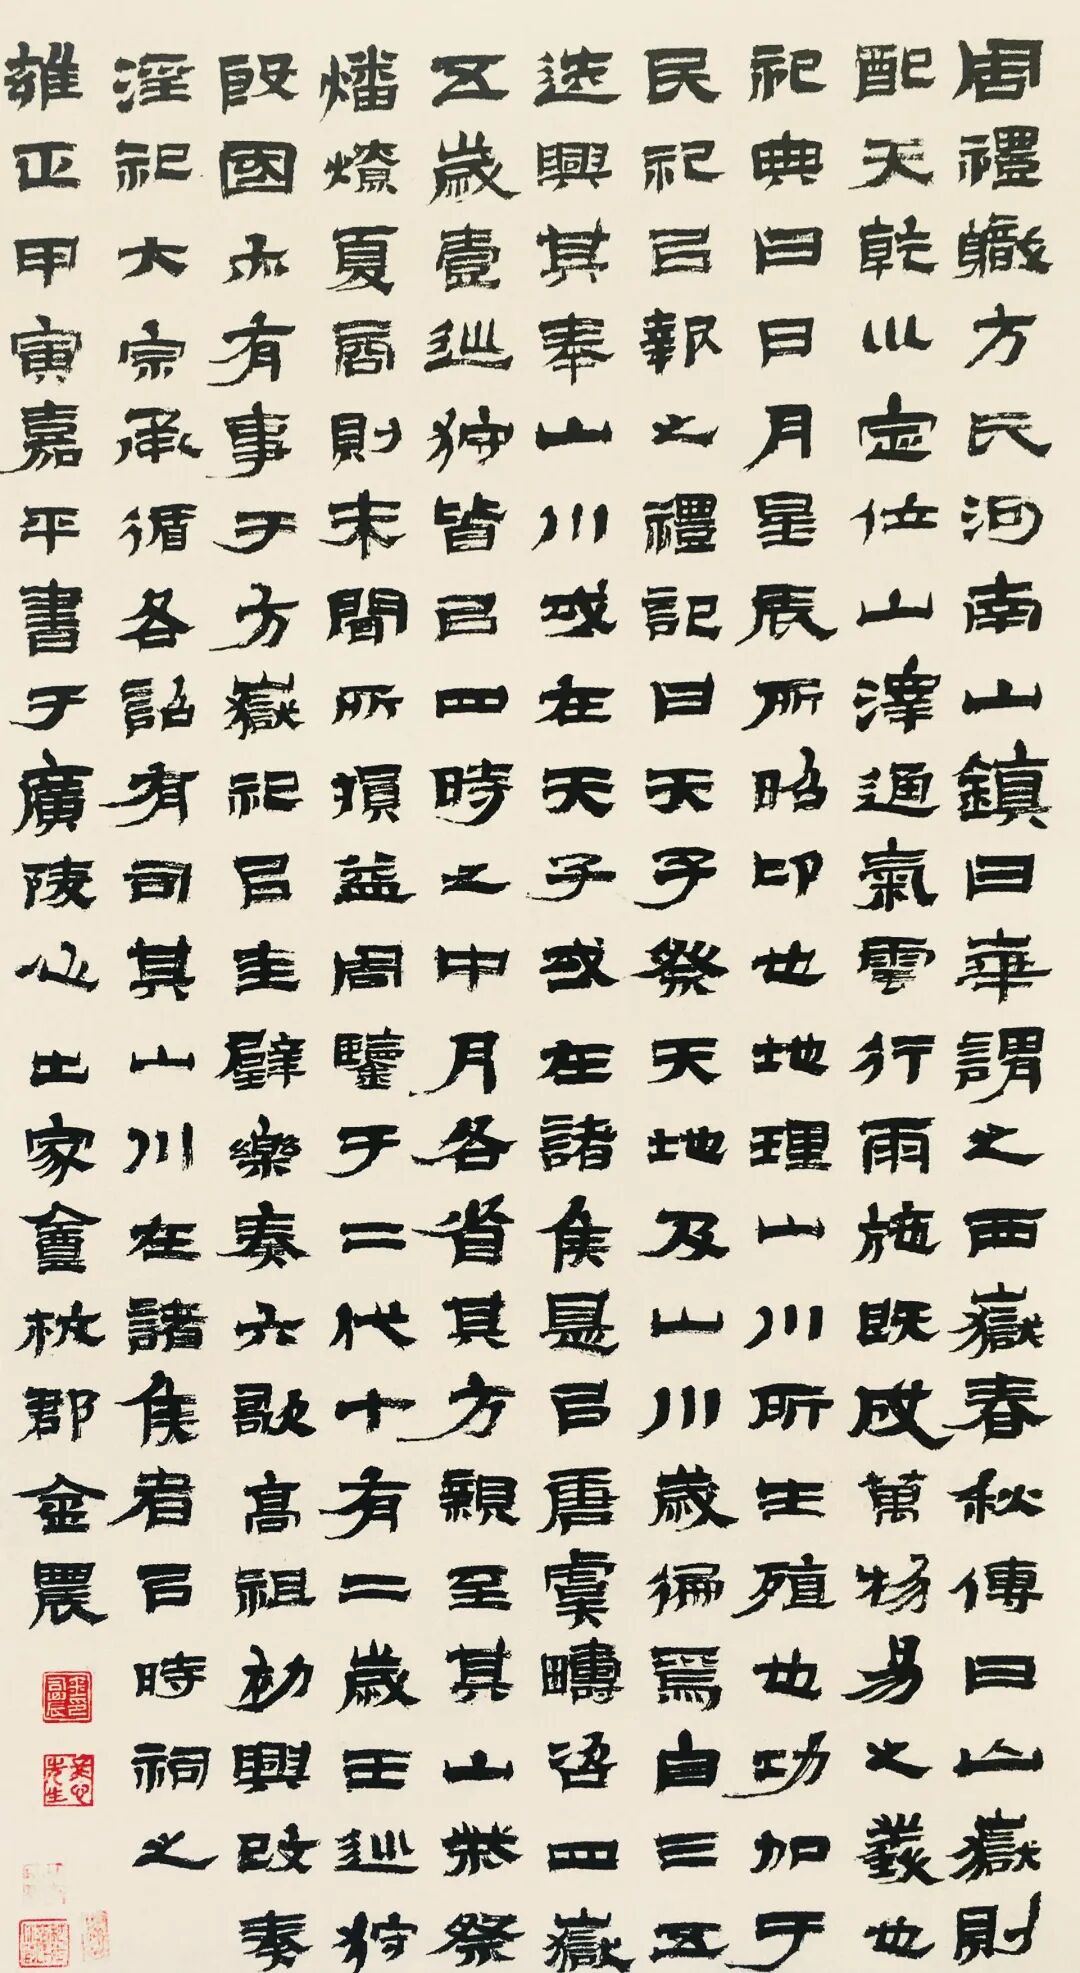 周禮職方氏河南山鎮曰華謂之西嶽春秋傳曰山嶽則
配天乾以定位山澤通氣雲行雨施既成萬物易之義也
祀典曰日月星辰所昭卬也地理山川所生殖也功加于
民祀以報之禮記曰天子祭天地及山川歲徧焉自三五
迭興其奉山川或在天子或在諸侯是以唐虞疇咨四嶽
五歲壹巡狩皆以四時之中月各省其方親至其山柴祭
燔燎夏商則未聞所損益周鑒于二代十有二歲王巡狩
殷國亦有事于方嶽祀以圭璧樂奏六歌高祖初興改秦
淫祀大宗承循各詔有司其山川在諸侯者以時祠之
雍正甲寅嘉平書于廣陵心出家盦杭郡金農
冬心先生